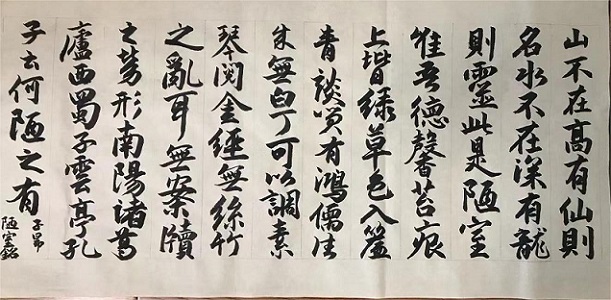 山不在高有仙則
名水不在深有龍
則靈此是陋室
惟吾德馨苔痕
上堦綠草色入簾
青談笑有鴻儒往
来無白丁可以調素
琴閱金經無絲竹
之亂耳無案牘
之勞形南陽諸葛
廬西蜀子雲亭孔
子云何陋之有
子昂
陋室銘